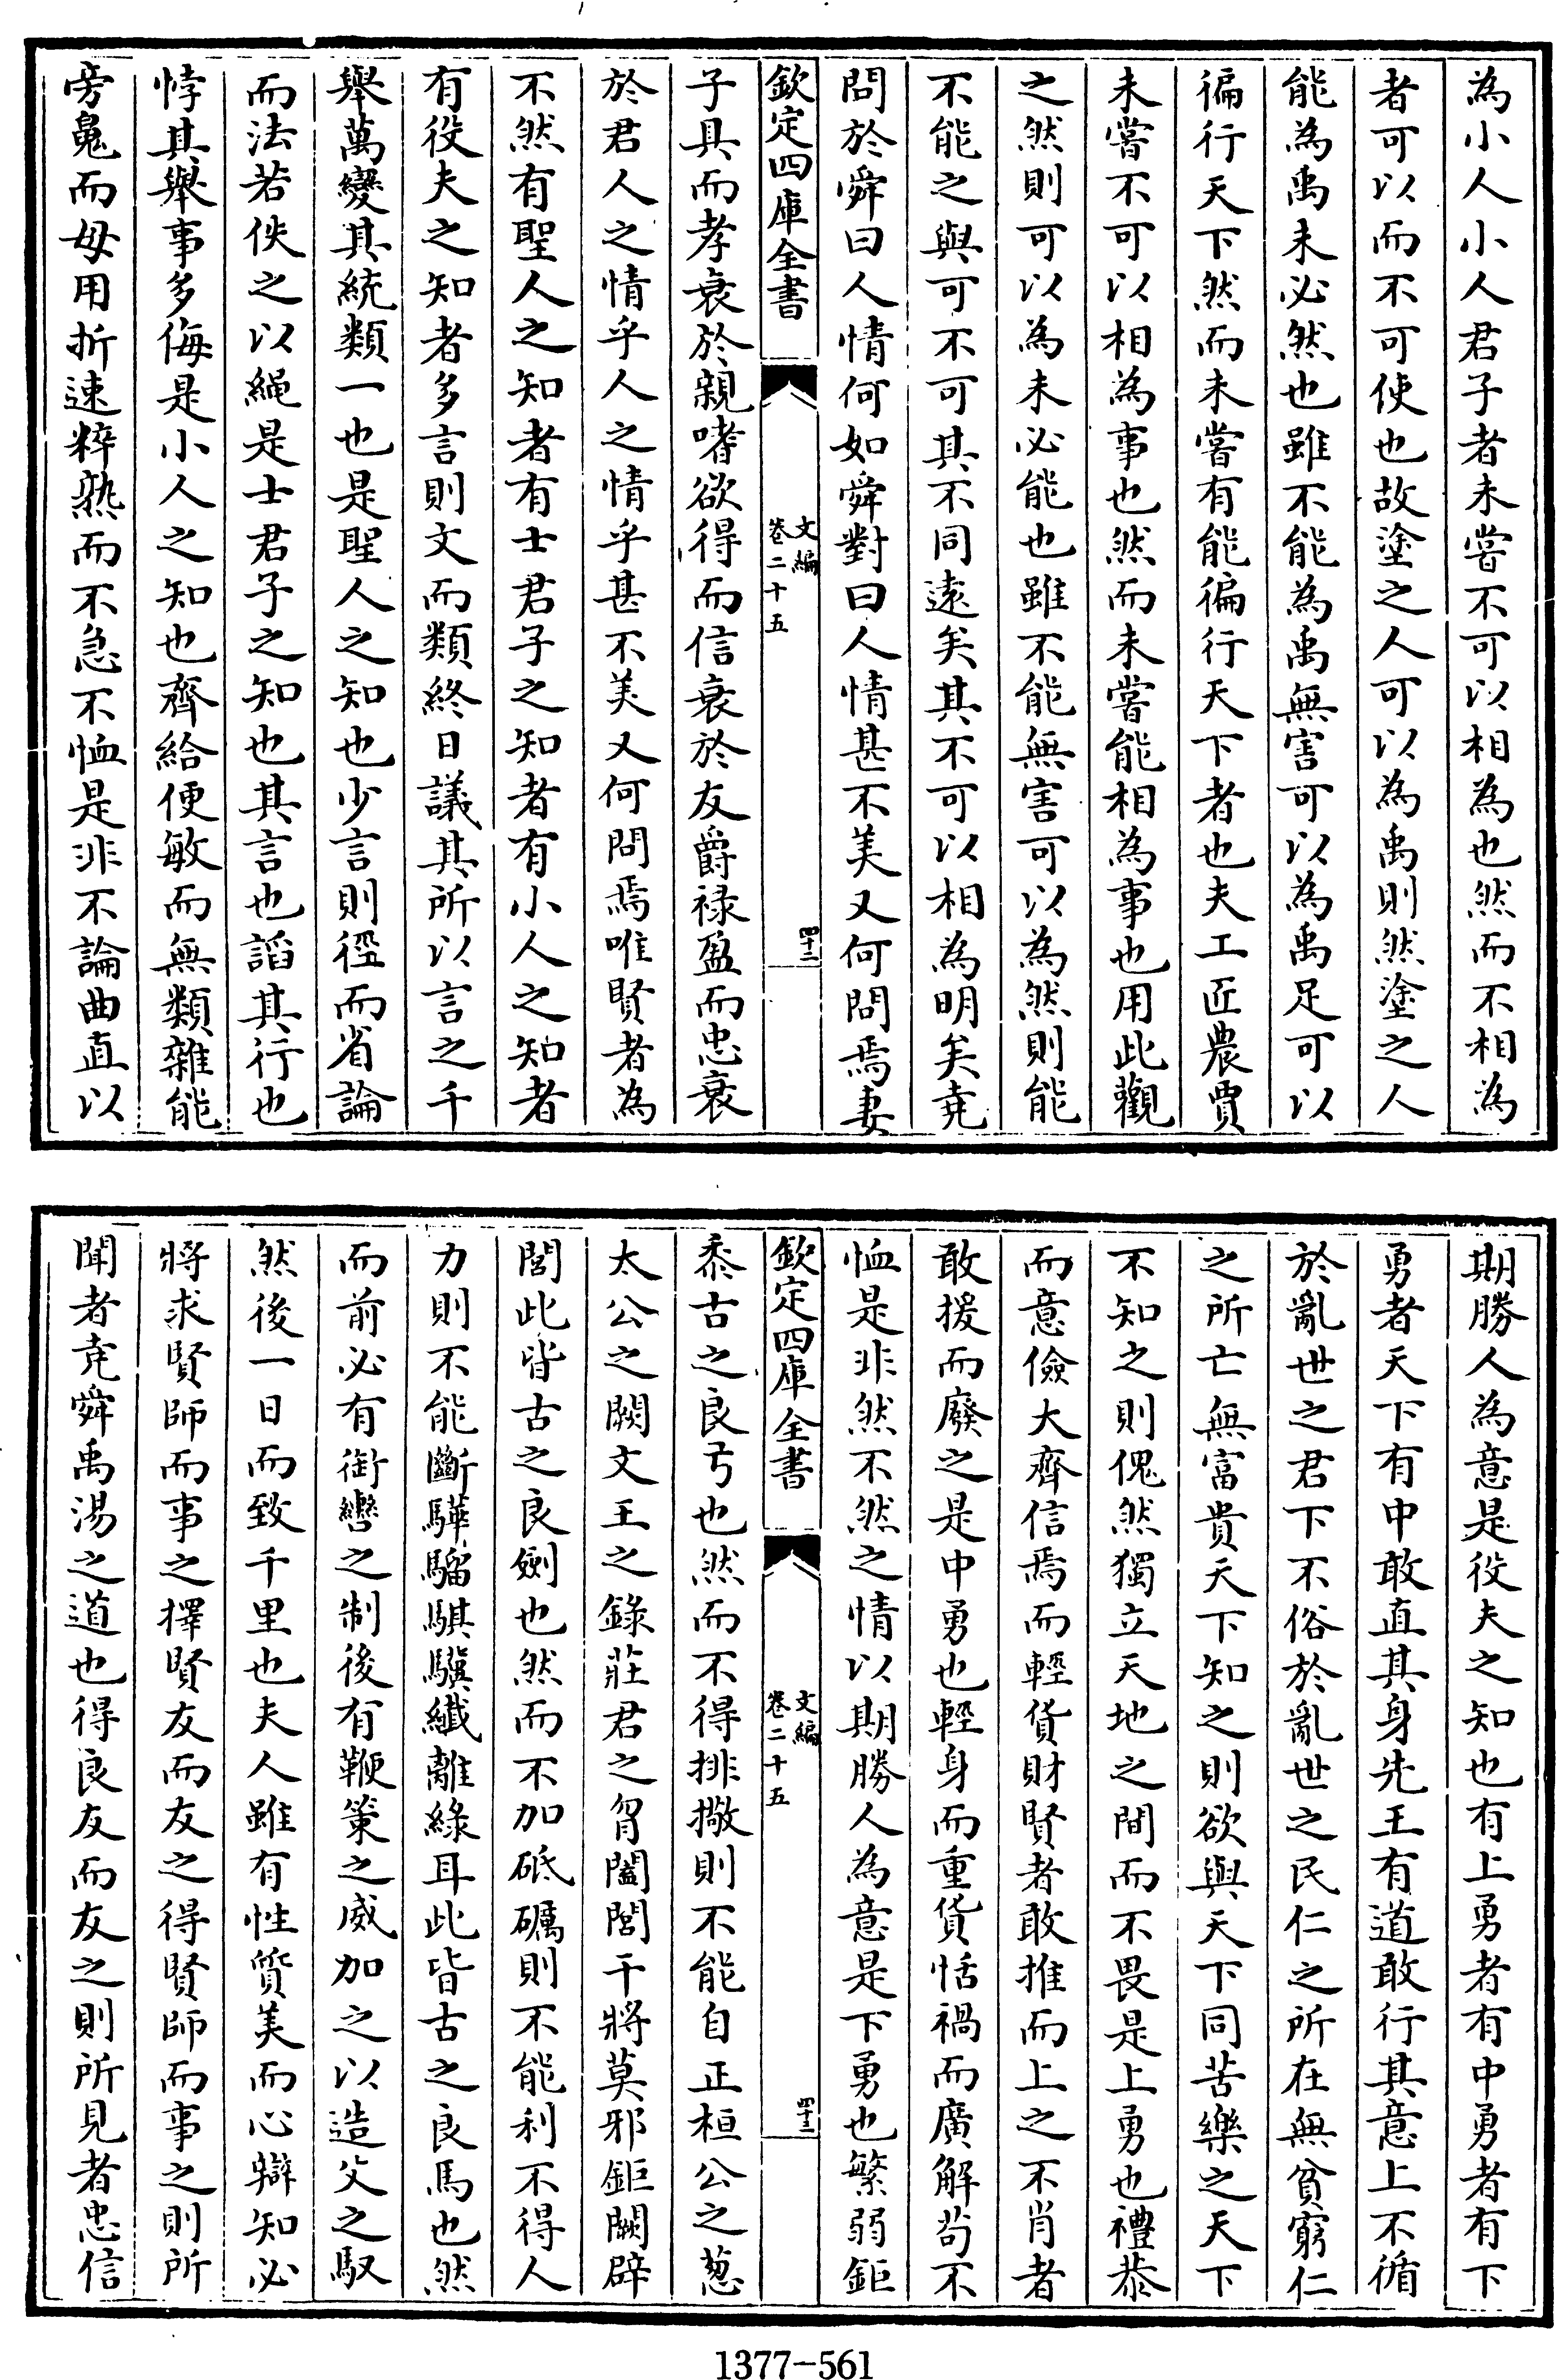 為小人小人君子者未嘗不可以相為也然而不相為
者可以而不可使也故塗之人可以為禹則然塗之人
能為禹未必然也雖不能為禹無害可以為禹足可以
徧行天下然而未嘗有能徧行天下者也夫工匠農賈
未嘗不可以相為事也然而未嘗能相為事也用此觀
之然則可以為未必能也雖不能無害可以為然則能
不能之與可不可其不同遠矣其不可以相為明矣堯
問於舜曰人情何如舜對曰人情甚不美又何問焉妻
欽定四庫全書
文編
卷二十五
四十三
子具而孝衰於親嗜欲得而信衰於友爵祿盈而忠衰
於君人之情乎人之情乎甚不美又何問焉唯賢者為
不然有聖人之知者有士君子之知者有小人之知者
有役夫之知者多言則文而類終日議其所以言之千
舉萬變其統類一也是聖人之知也少言則徑而省論
而法若佚之以繩是士君子之知也其言也謟其行也
悖其舉事多侮是小人之知也齊給便敏而無類雜能
旁鬼而毋用折速粹熟而不急不恤是非不論曲直以
期勝人為意是役夫之知也有上勇者有中勇者有下
勇者天下有中敢直其身先王有道敢行其意上不循
於亂世之君下不俗於亂世之民仁之所在無貧窮仁
之所亡無富貴天下知之則欲與天下同苦樂之天下
不知之則傀然獨立天地之間而不畏是上勇也禮恭
而意儉大齊信焉而輕貨財賢者敢推而上之不肖者
敢援而廢之是中勇也輕身而重貨恬禍而廣解苟不
恤是非然不然之情以期勝人為意是下勇也繁弱鉅
欽定四庫全書
文編
卷二十五
四十三
黍古之良弓也然而不得排㯳則不能自正桓公之葱
太公之闕文王之錄莊君之曶闔閭干將莫邪鉅闕辟
閭此皆古之良劍也然而不加砥礪則不能利不得人
力則不能斷驊騮騏驥纎離綠耳此皆古之良馬也然
而前必有銜轡之制後有鞭策之威加之以造父之馭
然後一日而致千里也夫人雖有性質美而心辯知必
將求賢師而事之擇賢友而友之得賢師而事之則所
聞者堯舜禹湯之道也得良友而友之則所見者忠信
1377-561